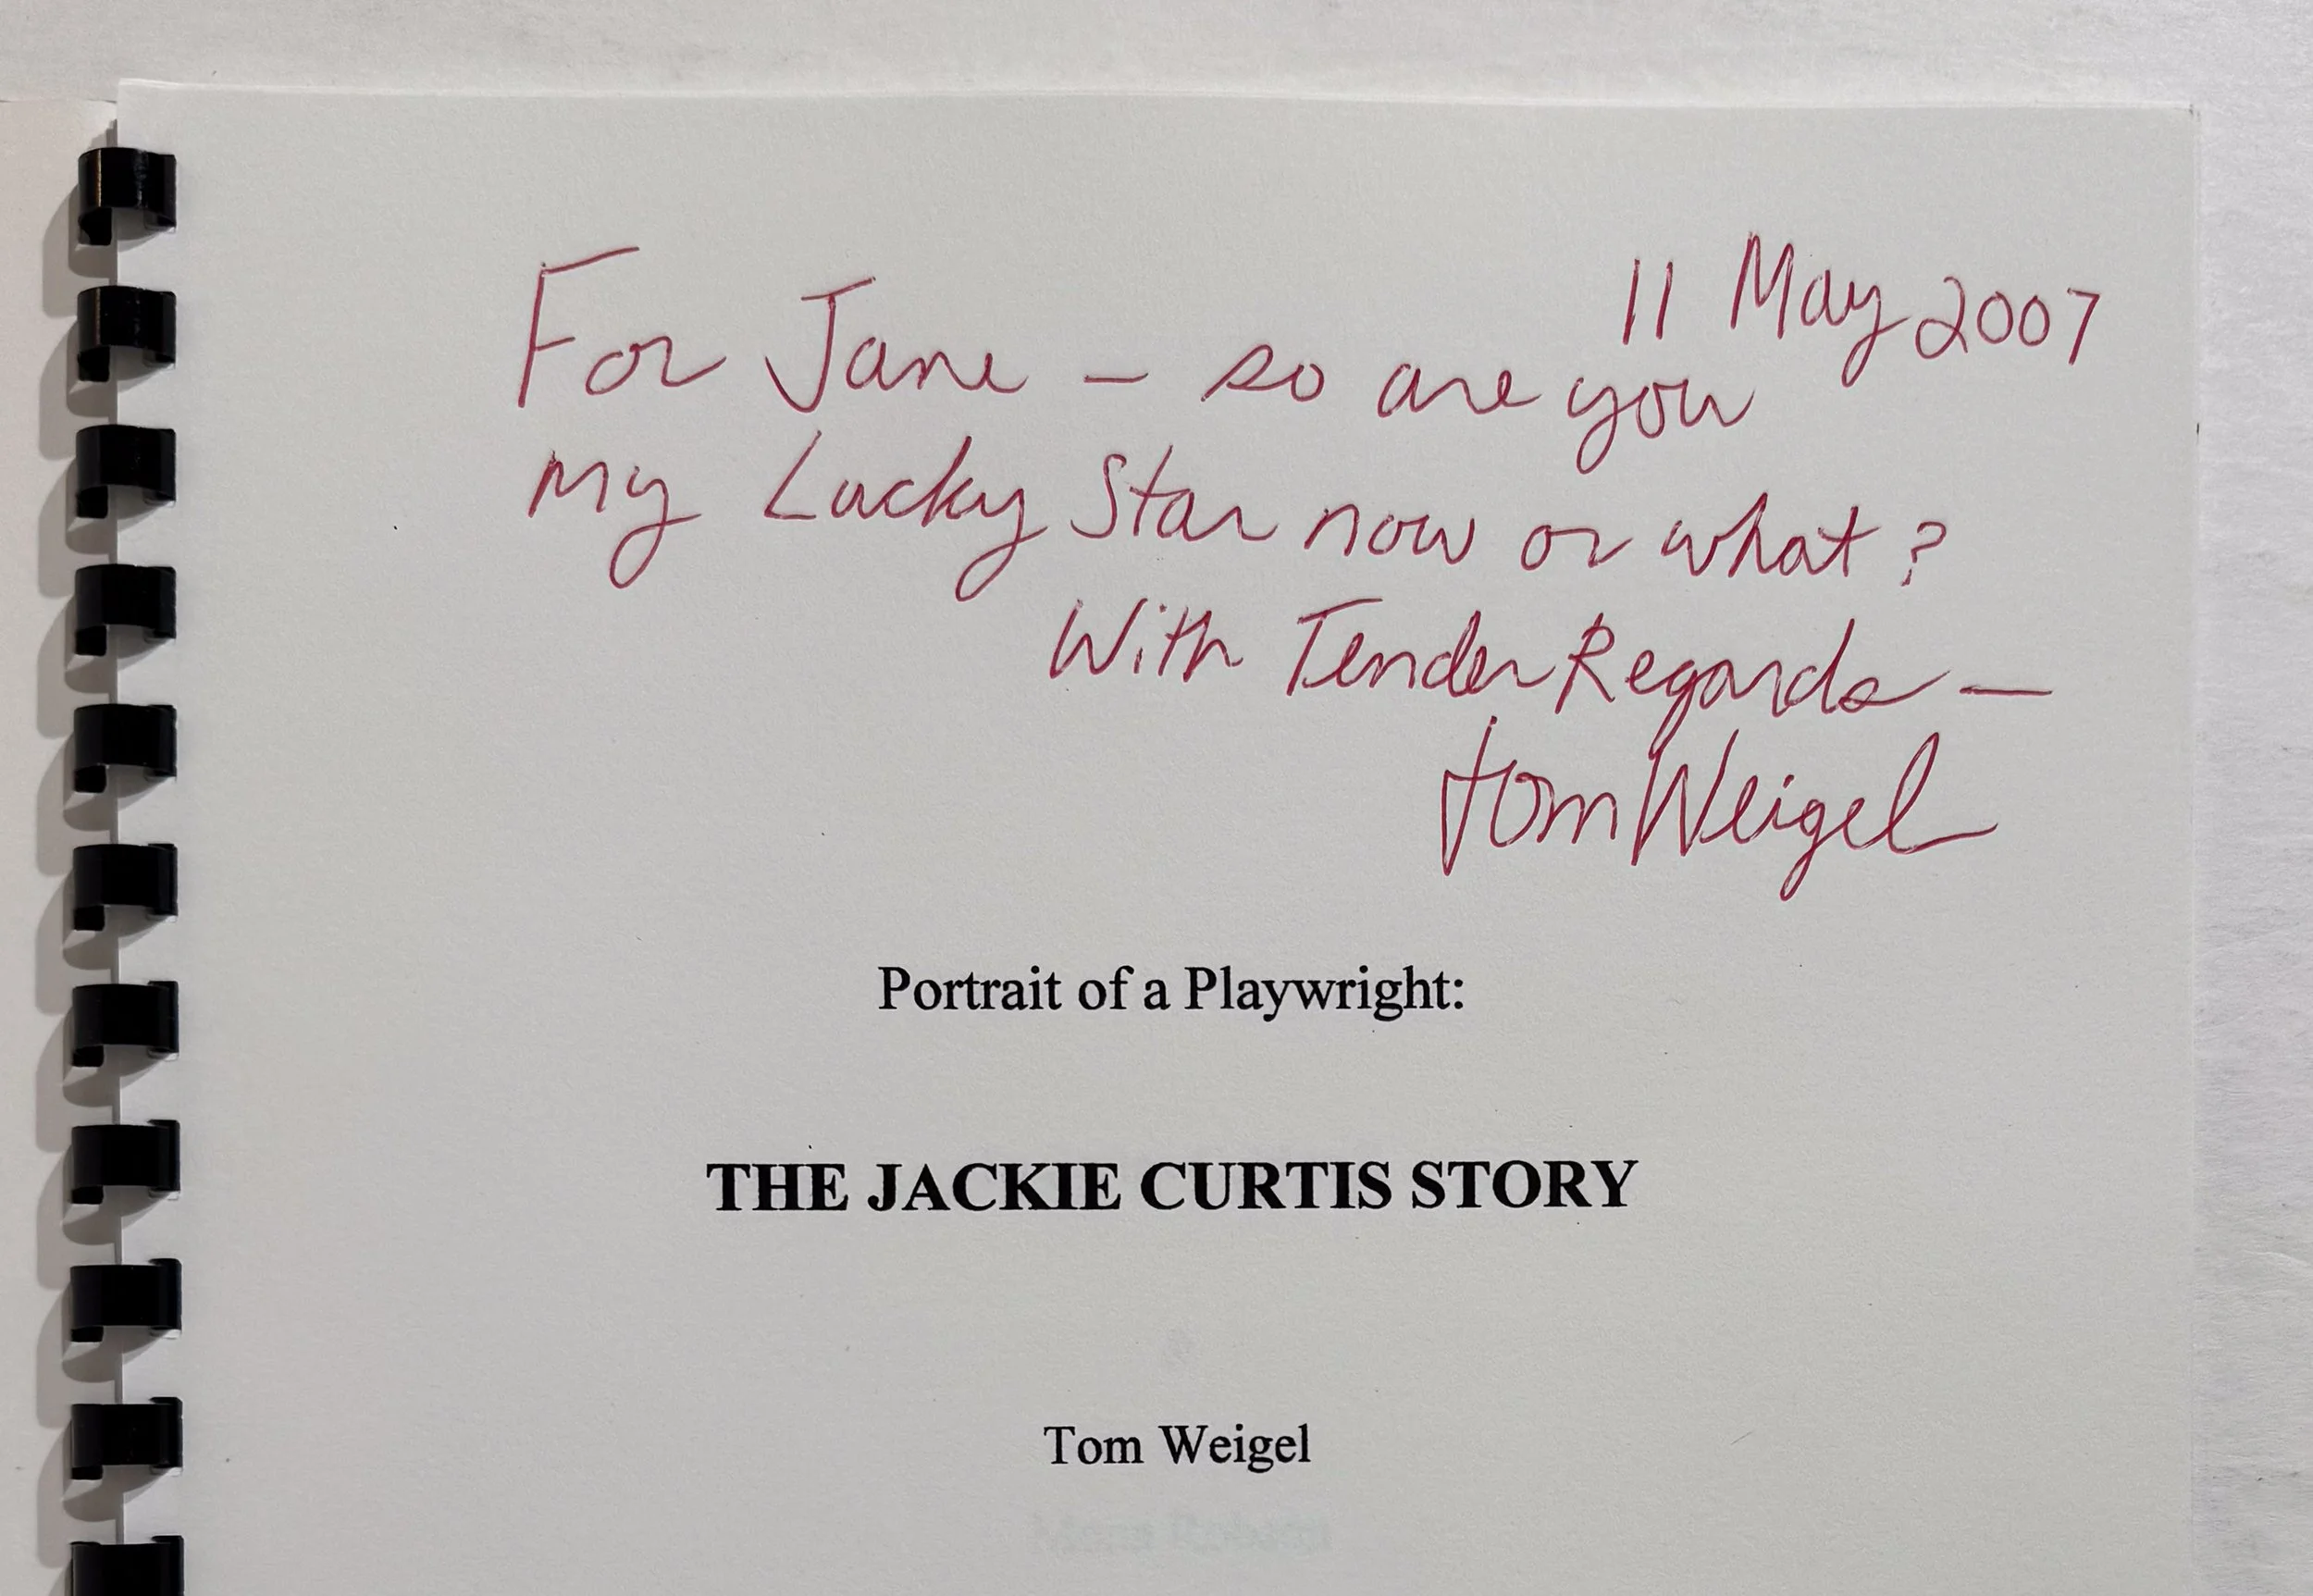 11 May 2007
For Jane – so are you
my Lucky Star now or what?
With Tender Regards –
Tom Weigel
Portrait of a Playwright:
THE JACKIE CURTIS STORY
Tom Weigel